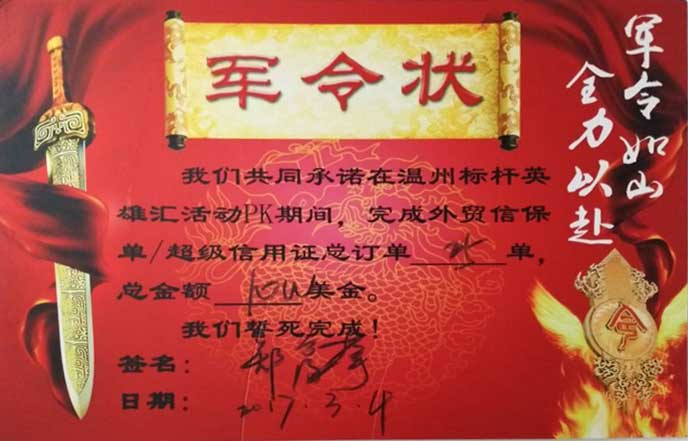 军令状
军令如山
全力以赴
我们共同承诺在温州标杆英
雄汇活动PK期间，完成外贸信保
单/超级信用证总订单25单，
总金额10W美金。
我们誓死完成！
签名：郑
日期：2017.3.4
令